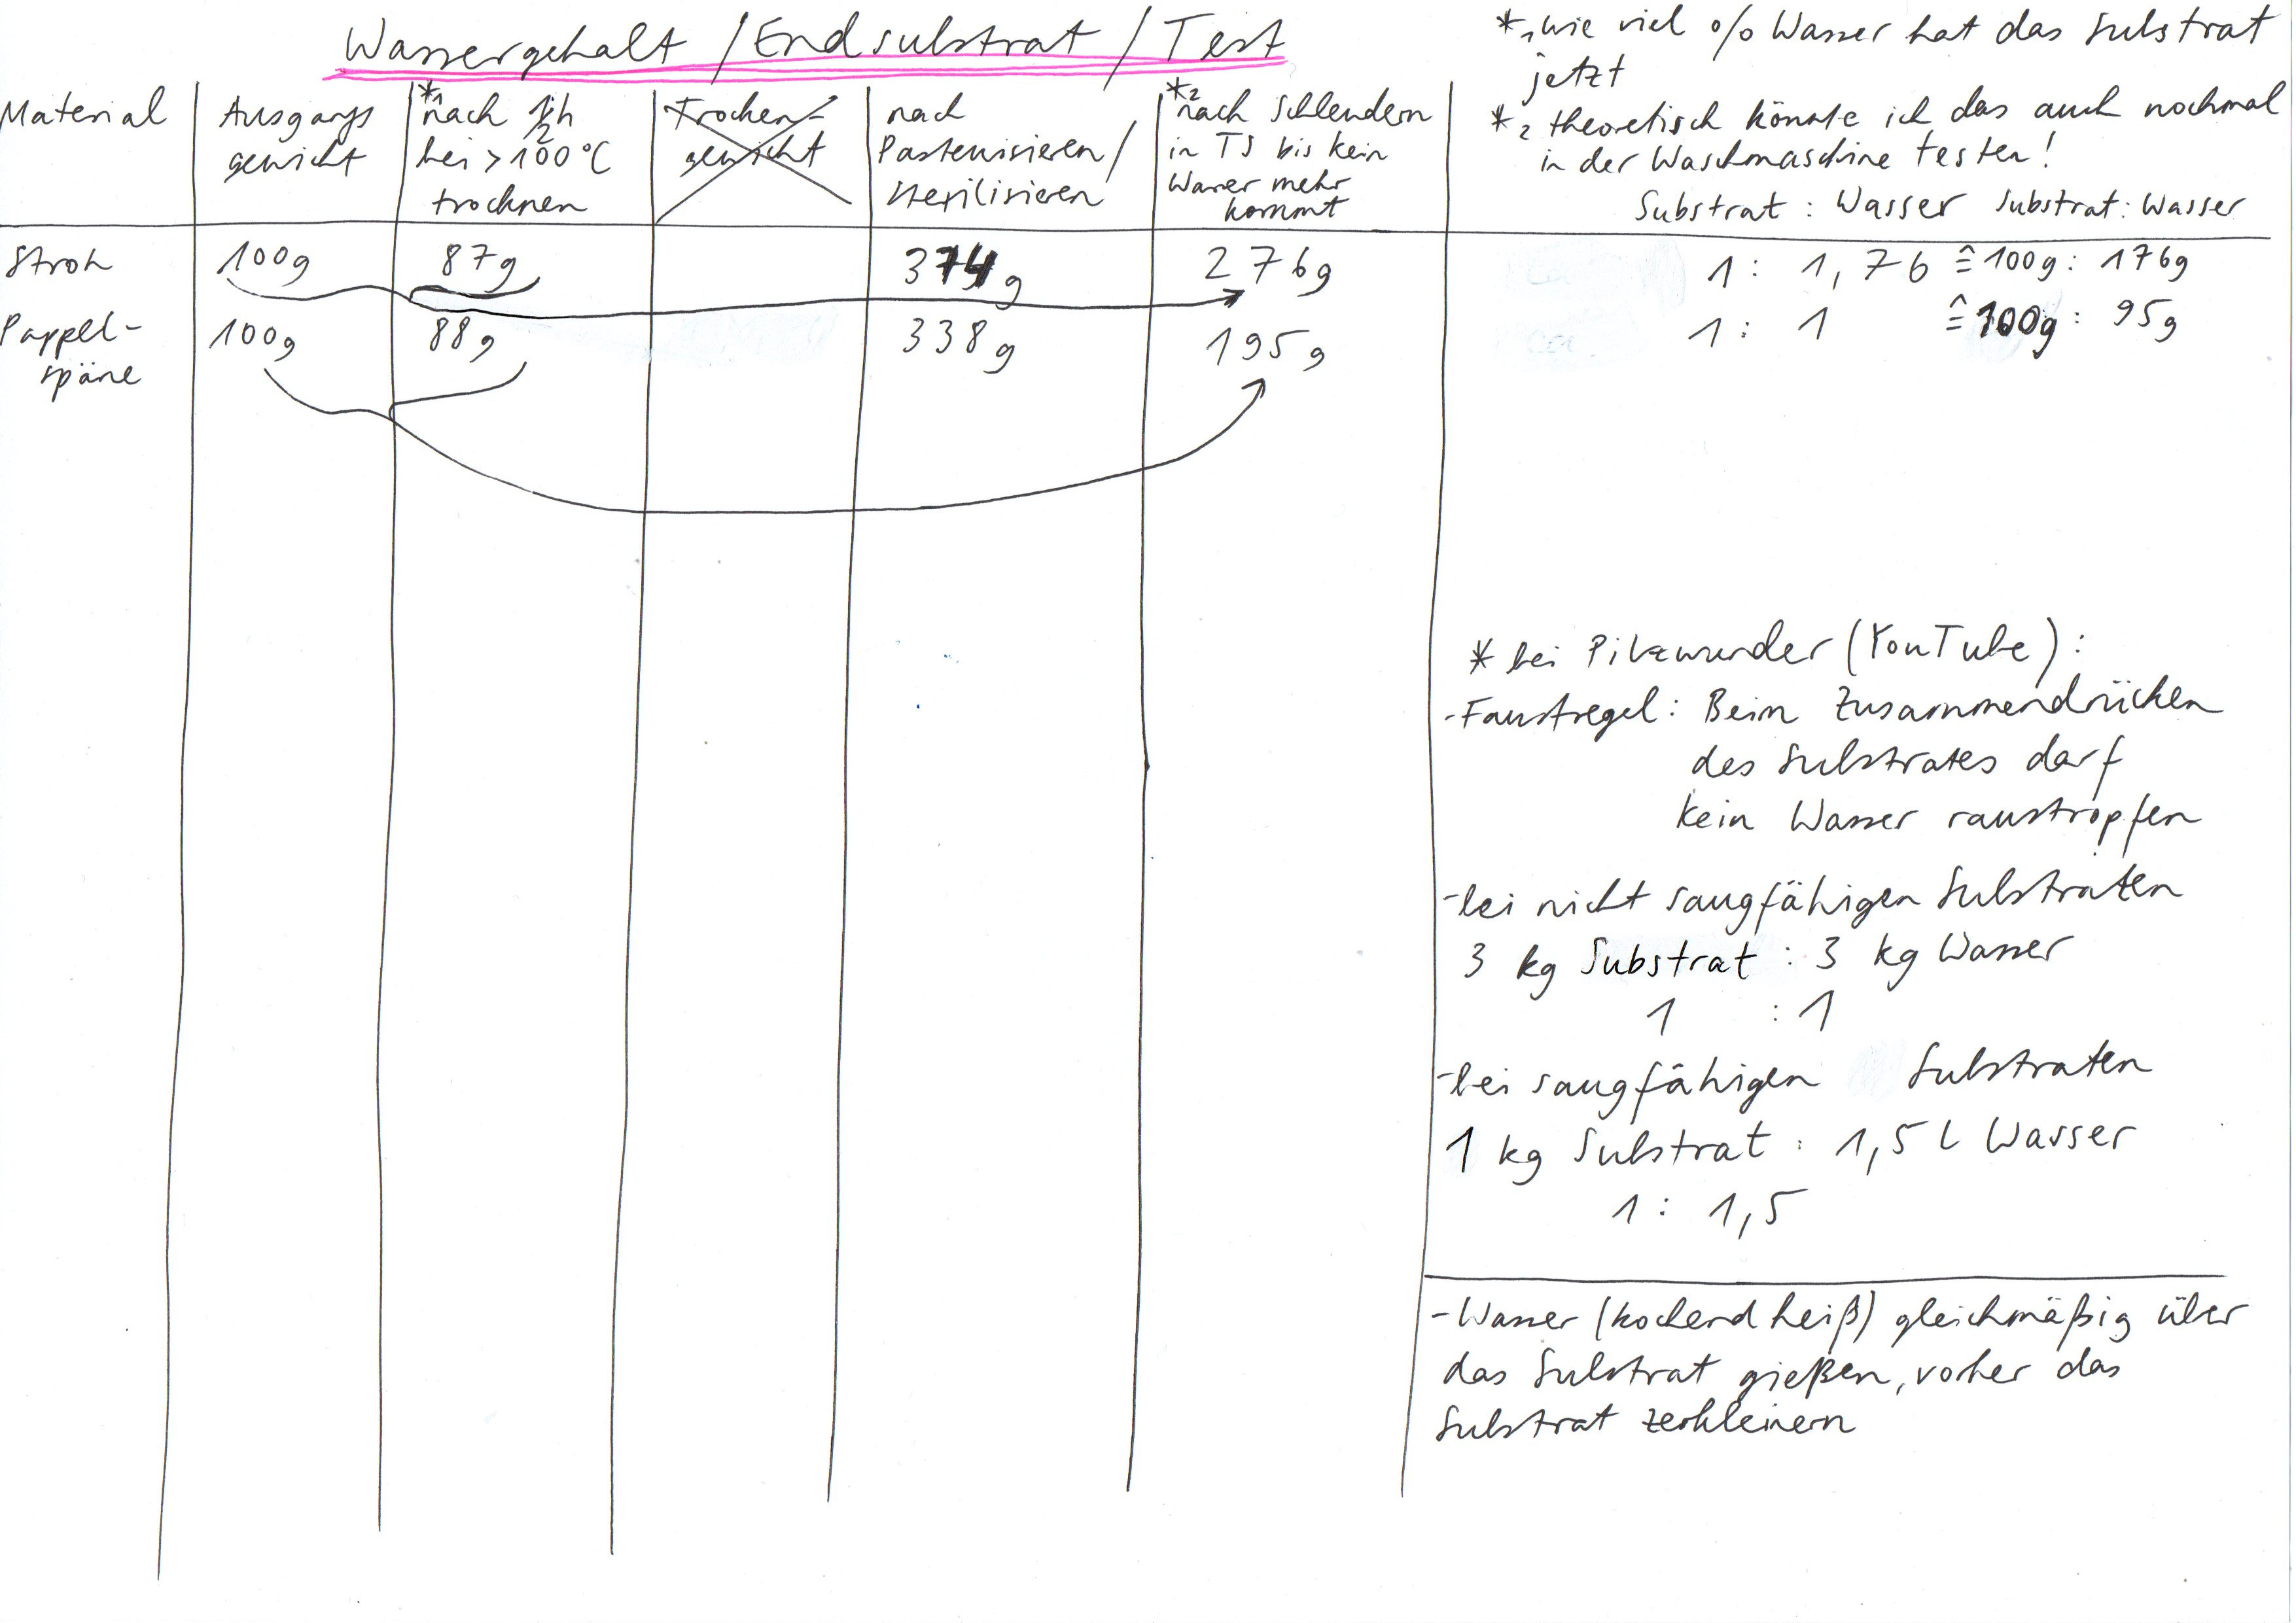 Wassergehalt / Endsubstrat / Test
*1 wie viel % Wasser hat das Substrat
jetzt
*2 theoretisch könnte ich das auch nochmal
in der Waschmaschine testen!
Substrat : Wasser Substrat : Wasser
Material
Ausgangs
gewicht
*1 nach
bei >100°C
trocknen
Trocken-
gewicht
nach
Pasteurisieren/
Sterilisieren
*2 nach Schleudern
in TS bis kein
Wasser mehr
kommt
Stroh 100g 87g 374g 276g 1 : 1,76 ≙ 100g : 176g
Pappel- 100g 88g 338g 195g 1 : 1 ≙ 100g : 95g
späne
* bei Pilzwunder (YouTube) :
- Faustregel : Beim Zusammendrücken
des Substrates darf
kein Wasser raustropfen
- bei nicht saugfähigen Substraten
3 kg Substrat : 3 kg Wasser
1 : 1
- bei saugfähigen Substraten
1 kg Substrat : 1,5 L Wasser
1 : 1,5
- Wasser (kochend heiß) gleichmäßig über
das Substrat gießen, vorher das
Substrat zerkleinern